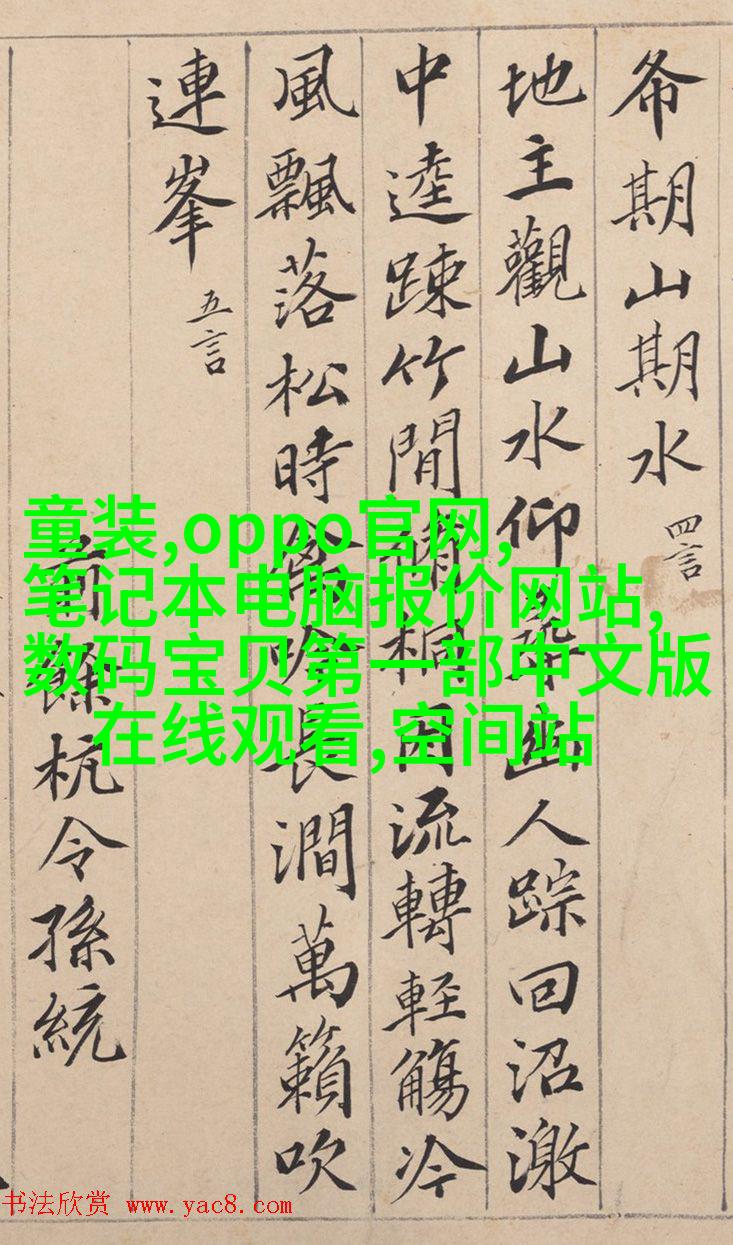 希期山期水 四言
地主觀山水仰尋幽人踪回沼激
中逵踈竹間脩桐因流轉輕觴冷
風飄落松時禽吟長澗萬籟吹
連峯 五言
前餘杭令孫統
童装,oppo官网,
笔记本电脑报价网站,
数码宝贝第一部中文版
在线观看,空间站
书法欣赏 www.yac8.com